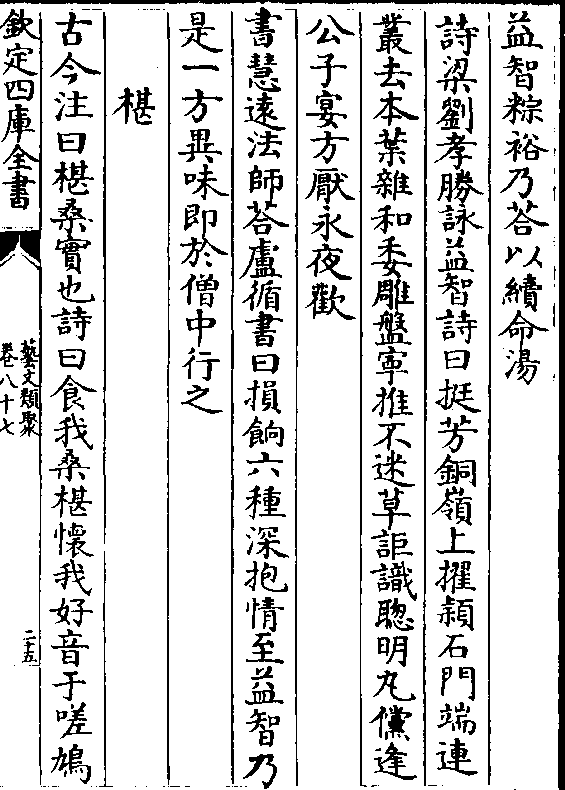 益智粽裕乃荅以續命湯
詩梁劉孝勝詠益智詩曰挺芳銅嶺上擢穎石門端連
叢去本葉雜和委雕盤寕推不迷草詎識聰明丸儻逢
公子宴方厭永夜歡
書慧遠法師荅盧循書曰損餉六種深抱情至益智乃
是一方異味即於僧中行之
椹
古今注曰椹桑實也詩曰食我桑椹懷我好音于嗟鳩
欽定四庫全書
藝文類聚
卷八十七
二十五